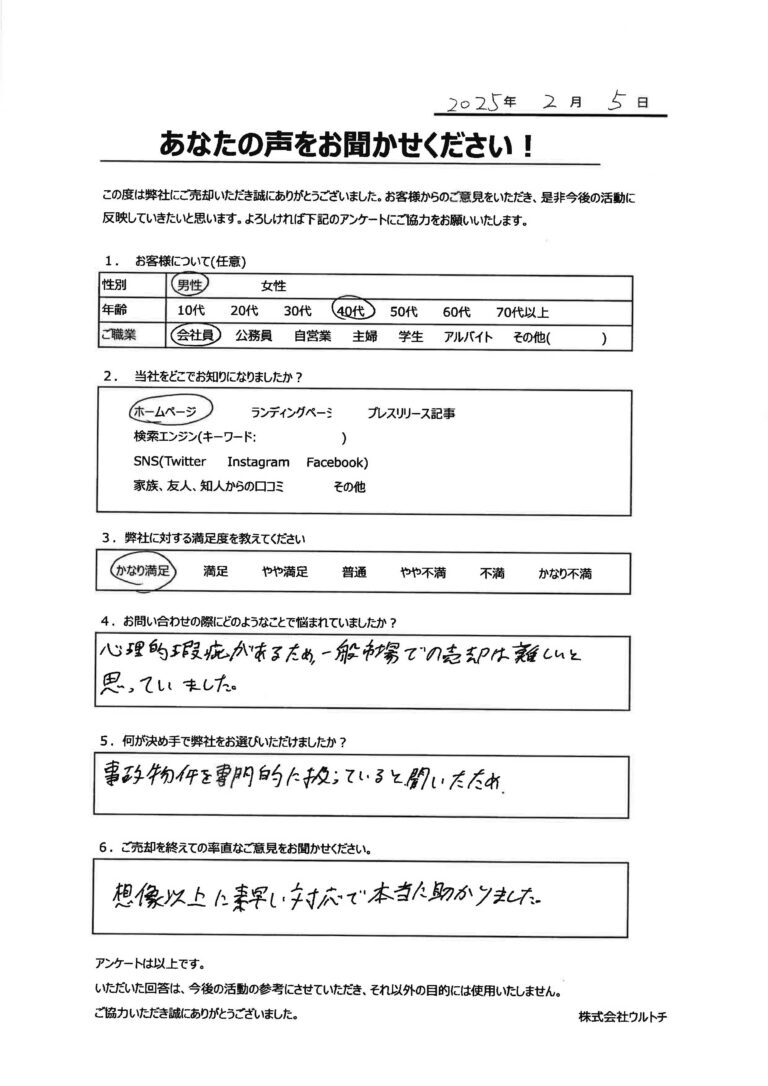 2025年 2月 5日
あなたの声をお聞かせください！
この度は弊社にご売却いただき誠にありがとうございました。お客様からのご意見をいただき、是非今後の活動に
反映していきたいと思います。よろしければ下記のアンケートにご協力をお願いいたします。
１． お客様について(任意)
性別 男性 女性
年齢 10代 20代 30代 40代 50代 60代 70代以上
ご職業 会社員 公務員 自営業 主婦 学生 アルバイト その他( )
２． 当社をどこでお知りになりましたか？
ホームページ ランディングページ プレスリリース記事
検索エンジン(キーワード: )
SNS(Twitter Instagram Facebook)
家族、友人、知人からの口コミ その他
３．弊社に対する満足度を教えてください
かなり満足 満足 やや満足 普通 やや不満 不満 かなり不満
４．お問い合わせの際にどのようなことで悩まれていましたか？
心理的瑕疵があるため、一般市場での売却は難しいと
思っていました。
５．何が決め手で弊社をお選びいただけましたか？
事故物件を専門的に扱っていると聞いたため。
６．ご売却を終えての率直なご意見をお聞かせください。
想像以上に素早い対応で本当に助かりました。
アンケートは以上です。
いただいた回答は、今後の活動の参考にさせていただき、それ以外の目的には使用いたしません。
ご協力いただき誠にありがとうございました。
株式会社ウルトチ